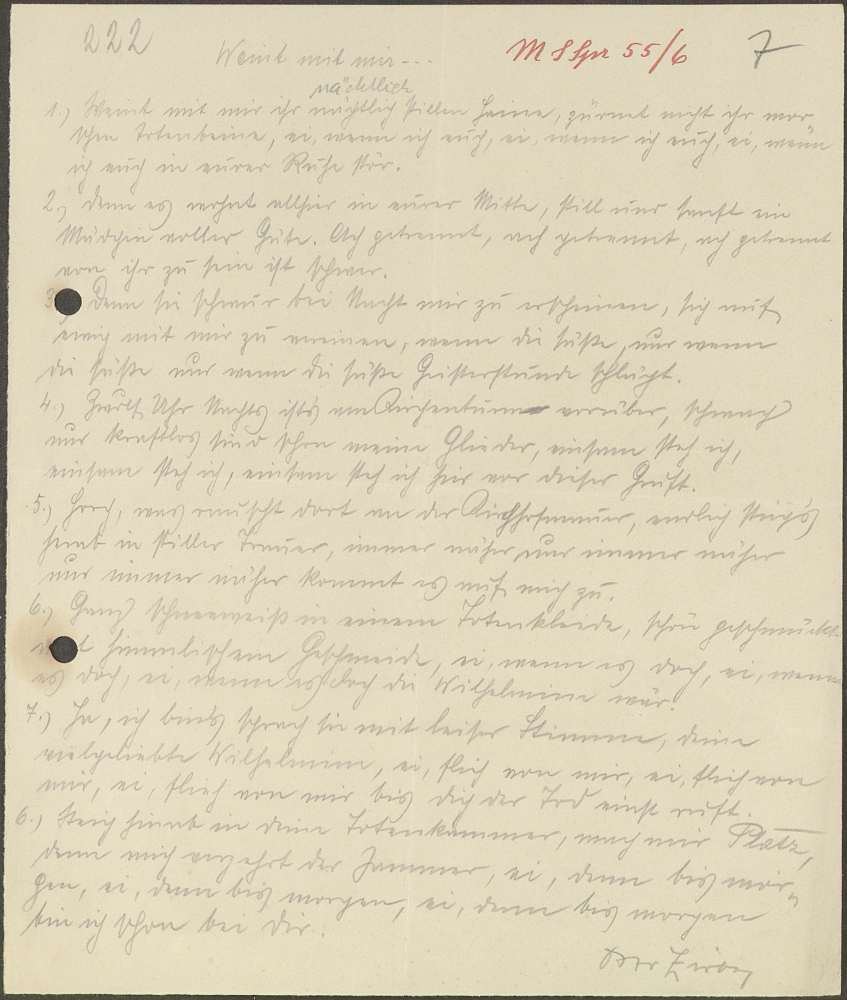 222
Weint mit mir ...
M S Spr 55/6
7
nächtlich
1.) Weint mit mir ihr nächtlich stillen Haine, zürnet nicht ihr mor
schen Totenbeine, ei, wenn ich euch, ei, wenn ich euch, ei, wenn
ich euch in eurer Ruhe stör.
2.) Denn es wohnt allhier in eurer Mitte, still und sanft ein
Mädchen voller Güte. Ach getrennt, ach getrennt, ach getrennt
von ihr zu sein ist schwer.
3.) Denn sie schwur bei Nacht mir zu erscheinen, sich auf
ewig mit mir zu vereinen, wenn die süße, nur wenn
die süße nur wenn die süße Geisterstunde schlägt.
4.) Zwölf Uhr Nachts ist's am Kirchenturm vorüber, schwach
und kraftlos sind schon meine Glieder, einsam steh ich,
einsam steh ich, einsam steh ich hier vor dieser Gruft.
5.) Horch, was rauscht dort an der Kirchhofmauer, endlich steigt's
herab in stiller Trauer, immer näher und immer näher
und immer näher kommt es auf mich zu.
6.) Ganz schneeweiß in einem Totenkleide, schön geschmückt
mit himmlischem Geschmeide, ei, wenn es doch, ei, wenn
es doch, ei, wenn es doch die Wilhelmine wär.
7.) Ja, ich bin's sprach sie mit leiser Stimme, deine
vielgeliebte Wilhelmine, ei, flieh von mir, ei, flieh von
mir, ei, flieh von mir bis dich der Tod einst ruft.
6.) Steig hinab in deine Totenkammer, mach mir Platz,
denn mich verzehrt der Jammer, ei, denn bis mor-
gen, ei, denn bis morgen, ei, denn bis morgen
bin ich schon bei Dir.